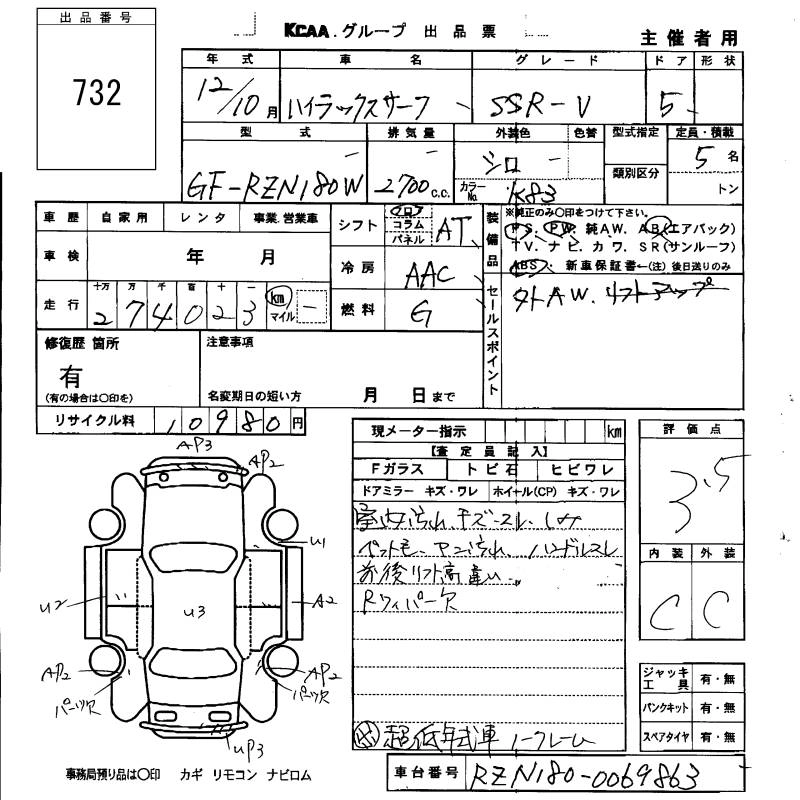 出品番号
732
KCAA.グループ 出品票
主催者用
年式 車名 グレード ドア 形状
12/10月 ハイラックスサーフ SSR-V 5
型式 排気量 外装色 色替 型式指定 定員・積載
GF-RZN180W 2700c.c. シロ 5名
カラーNo. K83 類別区分 トン
車歴 自家用 レンタ 事業.営業車
車検 年 月
走行 十万 万 千 百 十 一
274023 km マイル
シフト フロア コラム パネル AT
冷房 AAC
燃料 G
装備品
※純正のみ〇印をつけて下さい。
PS. PW. 純AW. AB(エアバック)
TV. ナビ. カワ. SR(サンルーフ)
ABS. 新車保証書←(注)後日送りのみ
セールスポイント
外AW. リフトアップ
修復歴 箇所
有
(有の場合は〇印を)
注意事項
名変期日の短い方 月 日まで
リサイクル料 10980円
現メーター指示 km
【査定員記入】
Fガラス トビ石 ヒビワレ
ドアミラー キズ・ワレ ホイール(CP) キズ・ワレ
室内汚れ.キズ・スレ.しみ
ペット毛.ヤニ汚れ.ハンドルスレ
前後リフト高違い
Rワイパー欠
超低年式車 ノークレーム
評価点
3.5
内装 外装
C C
ジャッキ工具 有・無
パンクキット 有・無
スペアタイヤ 有・無
AP3
AP2
U1
U2
U3
A2
AP2
パーツ欠
AP2
パーツ欠
UP3
事務局預り品は〇印 カギ リモコン ナビロム
車台番号 RZN180-0069863